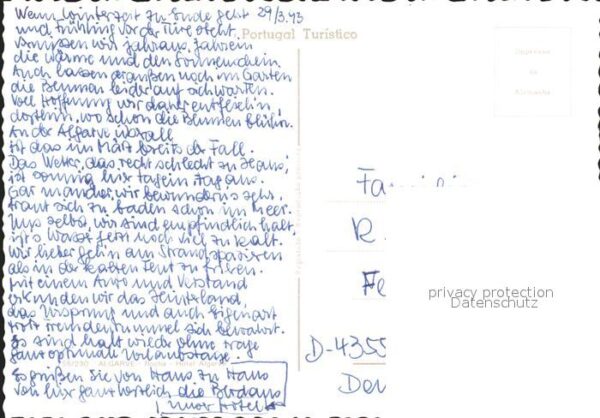 Wenn Winterzeit zu Ende geht 29/3.93
und Frühling vor der Türe steht.
Portugal Turístico
Vermissen wir jahraus, jahrein
die Wärme und den Sonnenschein.
Auch lassen draußen noch im Garten
die Blumen leider auf sich warten.
Voll Hoffnung wir dann entflieh'n,
dorthin, wo schon die Blumen blüh'n.
An der Algarve überall
ist das im März bereits der Fall.
Das Wetter, das recht schlecht zu Haus,
ist sonnig hier tagein tagaus.
Gar mancher, wir bewundern's sehr,
traut sich zu baden schon im Meer.
Uns selbst, wir sind empfindlich halt,
ist's Wasser jetzt noch viel zu kalt.
Wir lieber geh'n am Strand spazieren
als in der kalten Flut zu frieren.
Mit einem Auto und Verstand
erkunden wir das Hinterland,
das Ursprung und auch Eigenart
trotz Fremdenrummel sich bewahrt.
Es sind halt wieder ohne Frage
ganz optimale Urlaubstage.
ALGARVE
Es grüßen Sie von Haus zu Haus
von hier ganz herzlich die
unser Hotel
Fa
R
Fe
D-4355
privacy protection
Datenschutz